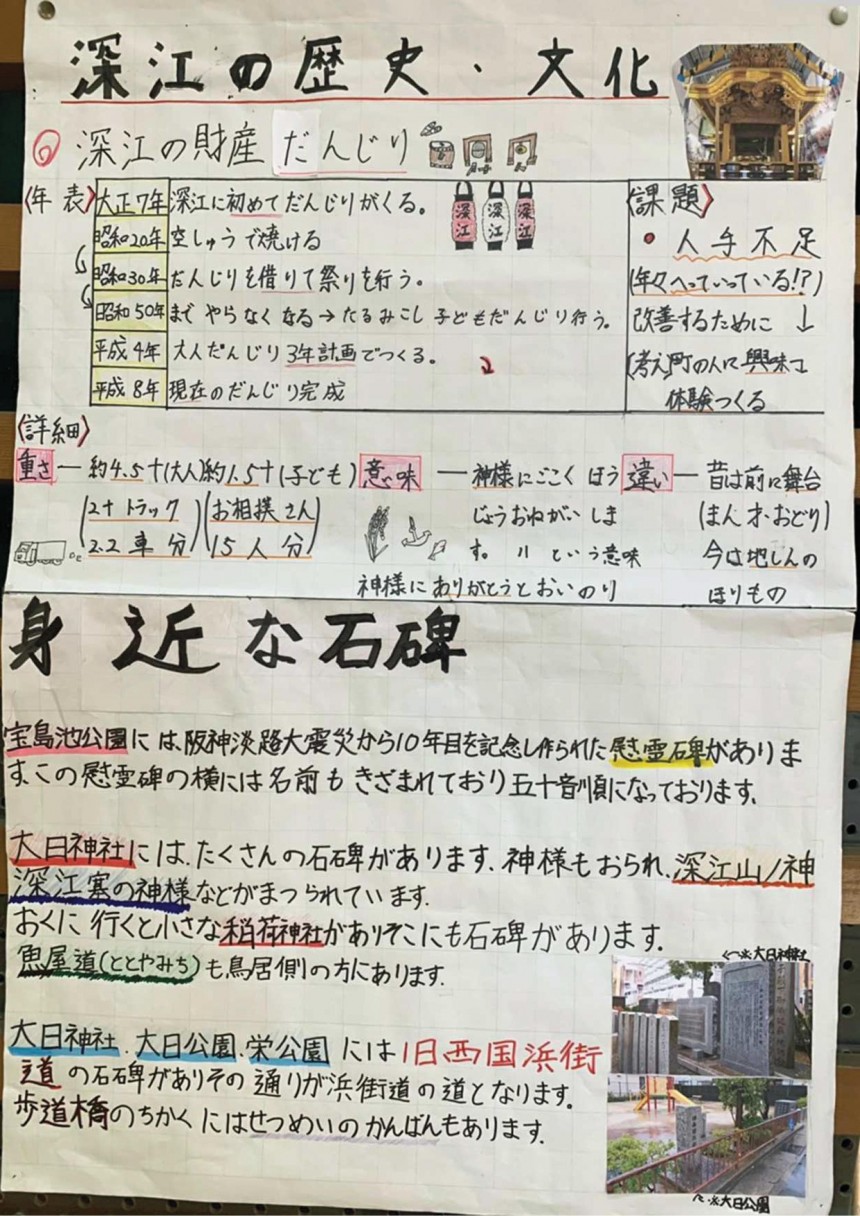 深江の歴史・文化
深江の財産だんじり
〈年表〉
大正7年 深江に初めてだんじりがくる。
昭和20年 空しゅうで焼ける
昭和30年 だんじりを借りて祭りを行う。
昭和50年 まで やらなくなる→たるみこし 子どもだんじり行う。
平成4年 大人だんじり3年計画でつくる。
平成8年 現在のだんじり完成
深江 深江 深江
〈課題〉
・人手不足
(年々へっていっている!?)
改善するために ↓
(考え)町の人に興味て
体験つくる
〈詳細〉
重さ―約4.5t(大人)約1.5t(子ども)
(2tトラック
2.2車分)
(お相撲さん
15人分)
意味―神様にごこくほう
じょうおねがいしま
す。〃という意味
神様にありがとうとおいのり
違い―昔は前に舞台
(まんオ・おどり)
今は地しんの
ほりもの
身近な石碑
宝島池公園には、阪神淡路大震災から10年目を記念し作られた慰霊碑がありま
す。この慰霊碑の横には名前もきざまれており五十音順になっております。
大日神社には、たくさんの石碑があります、神様もおられ、深江山ノ神
深江塞の神様などがまつられています。
おくに行くと小さな稲荷神社がありそこにも石碑があります。
魚屋道(ととやみち)も鳥居側の方にあります。
大日神社、大日公園、栄公園には旧西国浜街
道の石碑がありその通りが浜街道の道となります。
歩道橋のちかくにはせつめいのかんばんもあります。
※大日神社
※大日公園